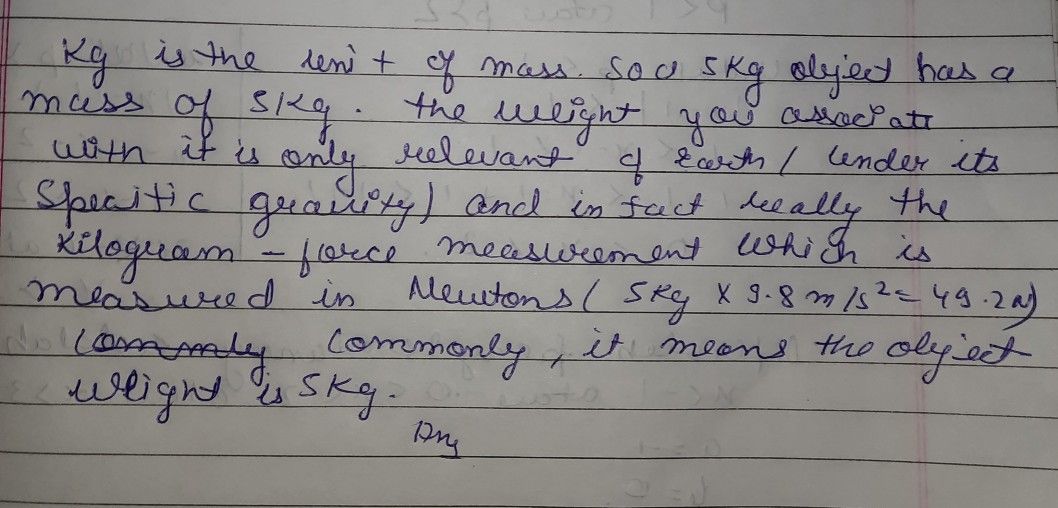 Kg is the unit of mass. So a 5Kg object has a
mass of 5Kg. the weight you associate
with it is only relevant of Earth ( under its
Specific gravity) and in fact really the
Kilogram - force measurement which is
measured in Newtons ( 5Kg X 9.8 m/s² = 49.2N)
commonly, it means the object
weight is 5Kg.
Ans